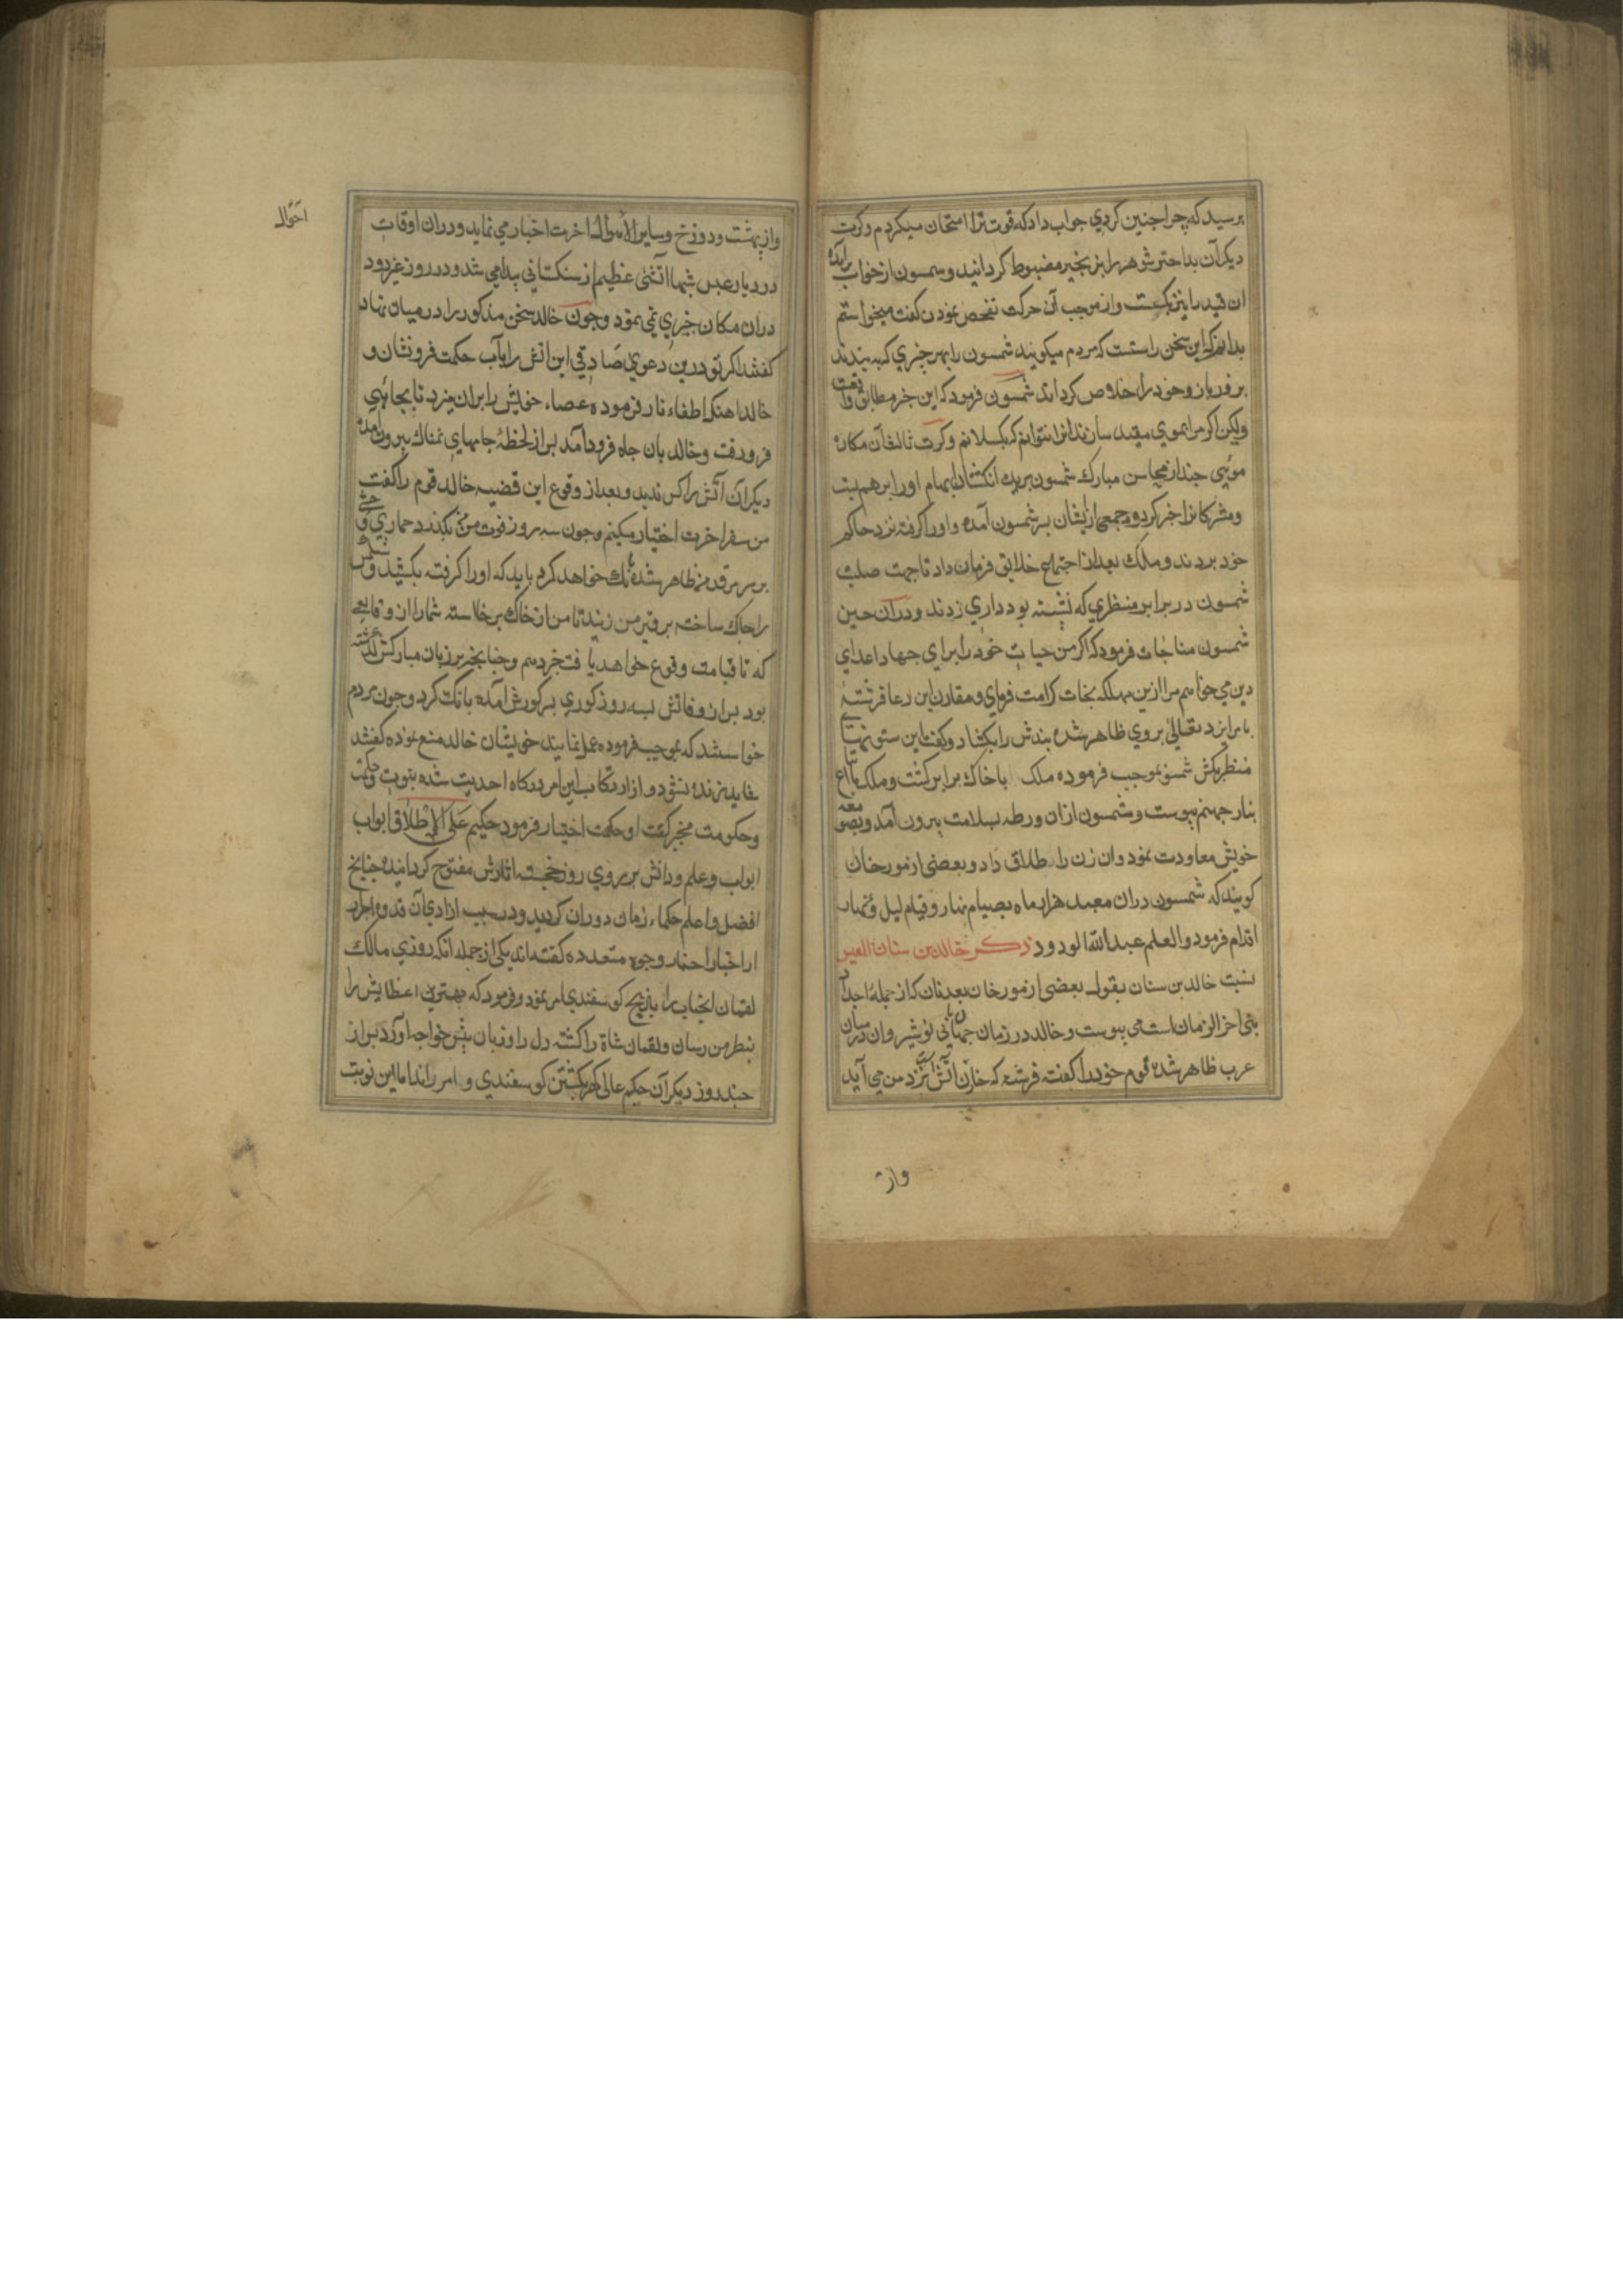 پرسید که چرا چنین کردی جواب داد که قوت ترا امتحان میکردم و کرت
دیکر آن بداختر شوهر را بزنجیر مضبوط کردانید و شمسون از خواب برآمده
ان قید را نیز بکسست و از موجب آن حرکت تفحص نمودن کفت میخواستم
بدانم که این سخن راستست که مردم میکویند شمسون را بهر چیزی که به بندند
بر فور باز و خود را خلاص کرداند شمسون فرمود که این خبر مطابق واقعست
ولیکن اکر مرا بموی مقید سازند انرا نتوانم که بکسلانم و کرت ثالث آن مکاره
موئی چند از محاسن مبارک شمسون برید انکشتان ابهام او را بر هم بست
و مشرکانرا خبر کرد و جمعی از ایشان بر شمسون آمده و او را کرفته نزد حاکم
خود بردند و ملک بعد از اجتماع خلایق فرمان داد تا جهت صلب
شمسون در برابر منظری که نشسته بود داری زدند و در آن حین
شمسون مناجات فرمود که اکر من حیات خود را برای جهاد اعدای
دین می خواهم مرا ازین مهلکه نجات کرامت فرمای و مقارن این دعا فرشتهٔ
بامر ایزد تعالی بر وی ظاهر شده بندش را بکشاد و کفت این ستونهای
منظر بکش شمسون بموجب فرموده ملک با خاک برابر کشت و ملک با اتباع
بنار جهنم پیوست و شمسون ازان ورطه بسلامت بیرون آمد و بصومعه
خویش معاودت نمود وان زن را طلاق داد و بعضی از مورخان
کویند که شمسون دران معبد هزار ماه بصیام نهار و قیام لیل
اقدام فرمود والعلم عبد الله الودود ذکر خالد بن سنان العبس
نسبت خالد بن سنان بقول بعضی از مورخان بعدنان که از جمله اجداد
نبی اخر الزمان است می پیوست و خالد در زمان جهانبانی نوشیروان در میان
عرب ظاهر شده قوم خود را کفته فرشته که خازن آتش است نزد من می آید
واز
واز بهشت و دوزخ و سایر الاموال اخرت اخبار می نماید و دران اوقات
در دیار عبس شبها آتشی عظیم از سنکستانی پیدا می شد و در روز غیر دود
دران مکان چیزی نمی نمود و چون خالد سخن مذکور را در میان نهاد
کفتند اکر تو درین دعوی صادقی این اتش را بآب حکمت فرو نشان و
خالد اهنک اطفاء نار فرموده عصاء خویش را بران میزد تا بچاهی
فرو رفت و خالد بان چاه فرود آمد پس از لحظهٔ جامهای نمناک بیرون آمده
دیکر آن آتش را کس ندید و بعد از وقوع این قضیه خالد قوم را کفت
من سفر اخرت اختیار میکنم و چون سه روز از فوت من بکذرد حماری
بر سر مرقد من ظاهر شده بانک خواهد کرد باید که او را کرفته بکشید و شکمش
را چاک ساخته بر قبر من زنید تا من از خاک برخاسته شما را از وقایعی
که تا قیامت وقوع خواهد یافت خبر دهم و چنانچه بر زبان مبارکش کذشته
بود بران وفاتش بسه روز کوری بر کورش آمده بانک کرد و چون مردم
خواستند که بموجب فرموده عمل نمایند خویشان خالد منع نموده کفتند
شاید زنده نشود و از ارتکاب این امر درکاه احدیت شده بنبوت و حکمت
و حکومت مخیر کشت او حکمت اختیار فرمود حکیم علی الاطلاق ابواب
ابواب و علم و دانش بر روی روز خجسته اثارش مفتوح کردانیده چنانچ
افضل و اعلم حکماء زمان دوران کردید و در سبب ازادی آن قدوه احرار
از اخبار اخیار وجوه متعدده کفته اند یکی از جمله انکه روزی مالک
لقمان انجناب را بذبح کوسفندی امر نمود و فرمود که بهترین اعضایش را
بنظر من رسان و لقمان شاة را کشته دل را و زبان پیش خواجه آورد پس از
چند روز دیکر آن حکیم عالی کهر بکشتن کوسفندی و امر راند اما این نوبت
احوال